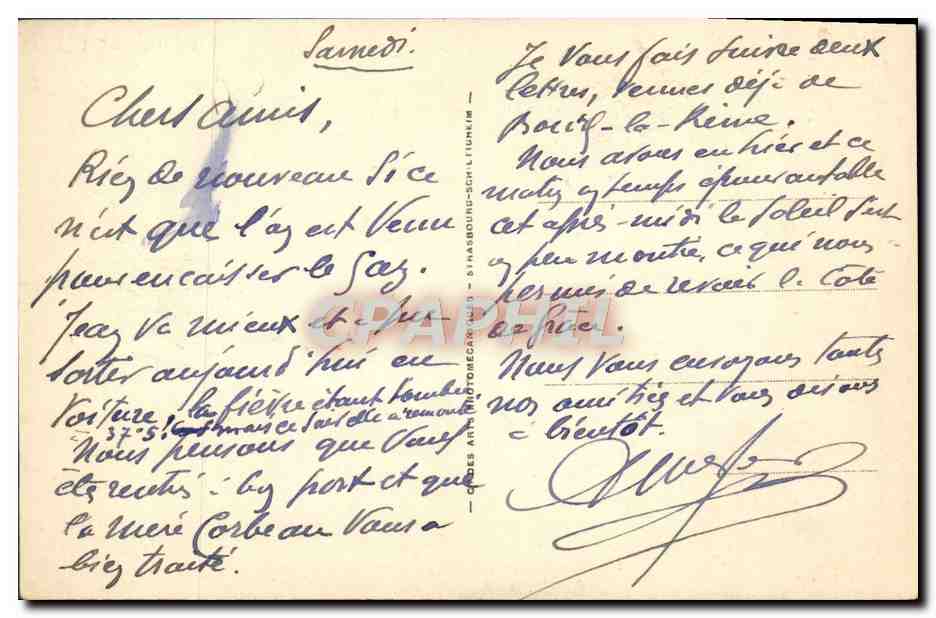 Samedi.
Chers amis,
Rien de nouveau si ce
n'est que l'on est venu
pour encaisser le Gaz.
Jean va mieux et a pu
sortir aujourd'hui en
voiture, la fièvre étant tombée
37°5. mais ce soir elle a remonté
Nous pensons que vous
êtes rentrés à bon port et que
la mère Corbeau vous a
bien traité.
Je vous fais suivre deux
lettres, venues déjà de
Bourg-la-Reine.
Nous avons eu hier et ce
matin un temps épouvantable
cet après-midi le soleil s'est
un peu montré, ce qui nous
permis de revoir la Cote
de grâce.
Nous vous envoyons toutes
nos amitiés et vous disons
à bientôt.
CIE DES ARTS PHOTOMECANIQUES - STRASBOURG-SCHILTIGHEIM
CPAPHIL